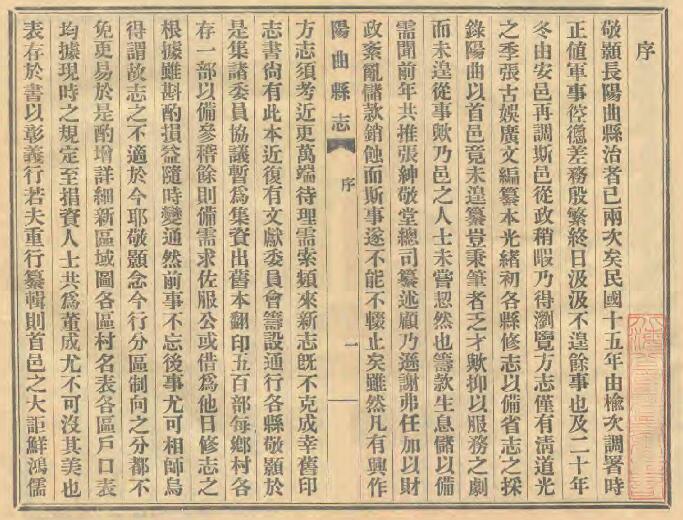 序
敬顥長陽曲縣治者已兩次矣民國十五年由楡次調署時
正值軍事倥傯差務殷繁終日汲汲不遑餘事也及二十年
冬由安邑再調斯邑從政稍暇乃得瀏覽方志僅有清道光
之季張古娛廣文編纂本光緒初各縣修志以備省志之採
錄陽曲以首邑竟未遑纂豈秉筆者乏才歟抑以服務之劇
而未遑從事歟乃邑之人士未嘗恝然也籌款生息儲以備
需聞前年共推張紳敬堂總司纂述顧乃遜謝弗任加以財
政紊亂儲款銷蝕而斯事遂不能不輟止矣雖然凡有興作
陽曲縣志
序
一
方志須考近更萬端待理需索類來新志既不克成幸舊印
志書尙有此本近復有文獻委員會籌設通行各縣敬顥於
是集諸委員協議暫爲集資出舊本翻印五百部每鄉村各
存一部以備參稽餘則備需求佐服公或借爲他日修志之
根據雖斟酌損益隨時變通然前事不忘後事尤可相師烏
得謂故志之不適於今耶敬顥念今行分區制向之分都不
免更易於是酌增詳細新區域圖各區村名表各區戶口表
均據現時之規定至捐資人士共爲董成尤不可沒其美也
表存於書以彰義行若夫重行纂輯則首邑之大詎鮮鴻儒